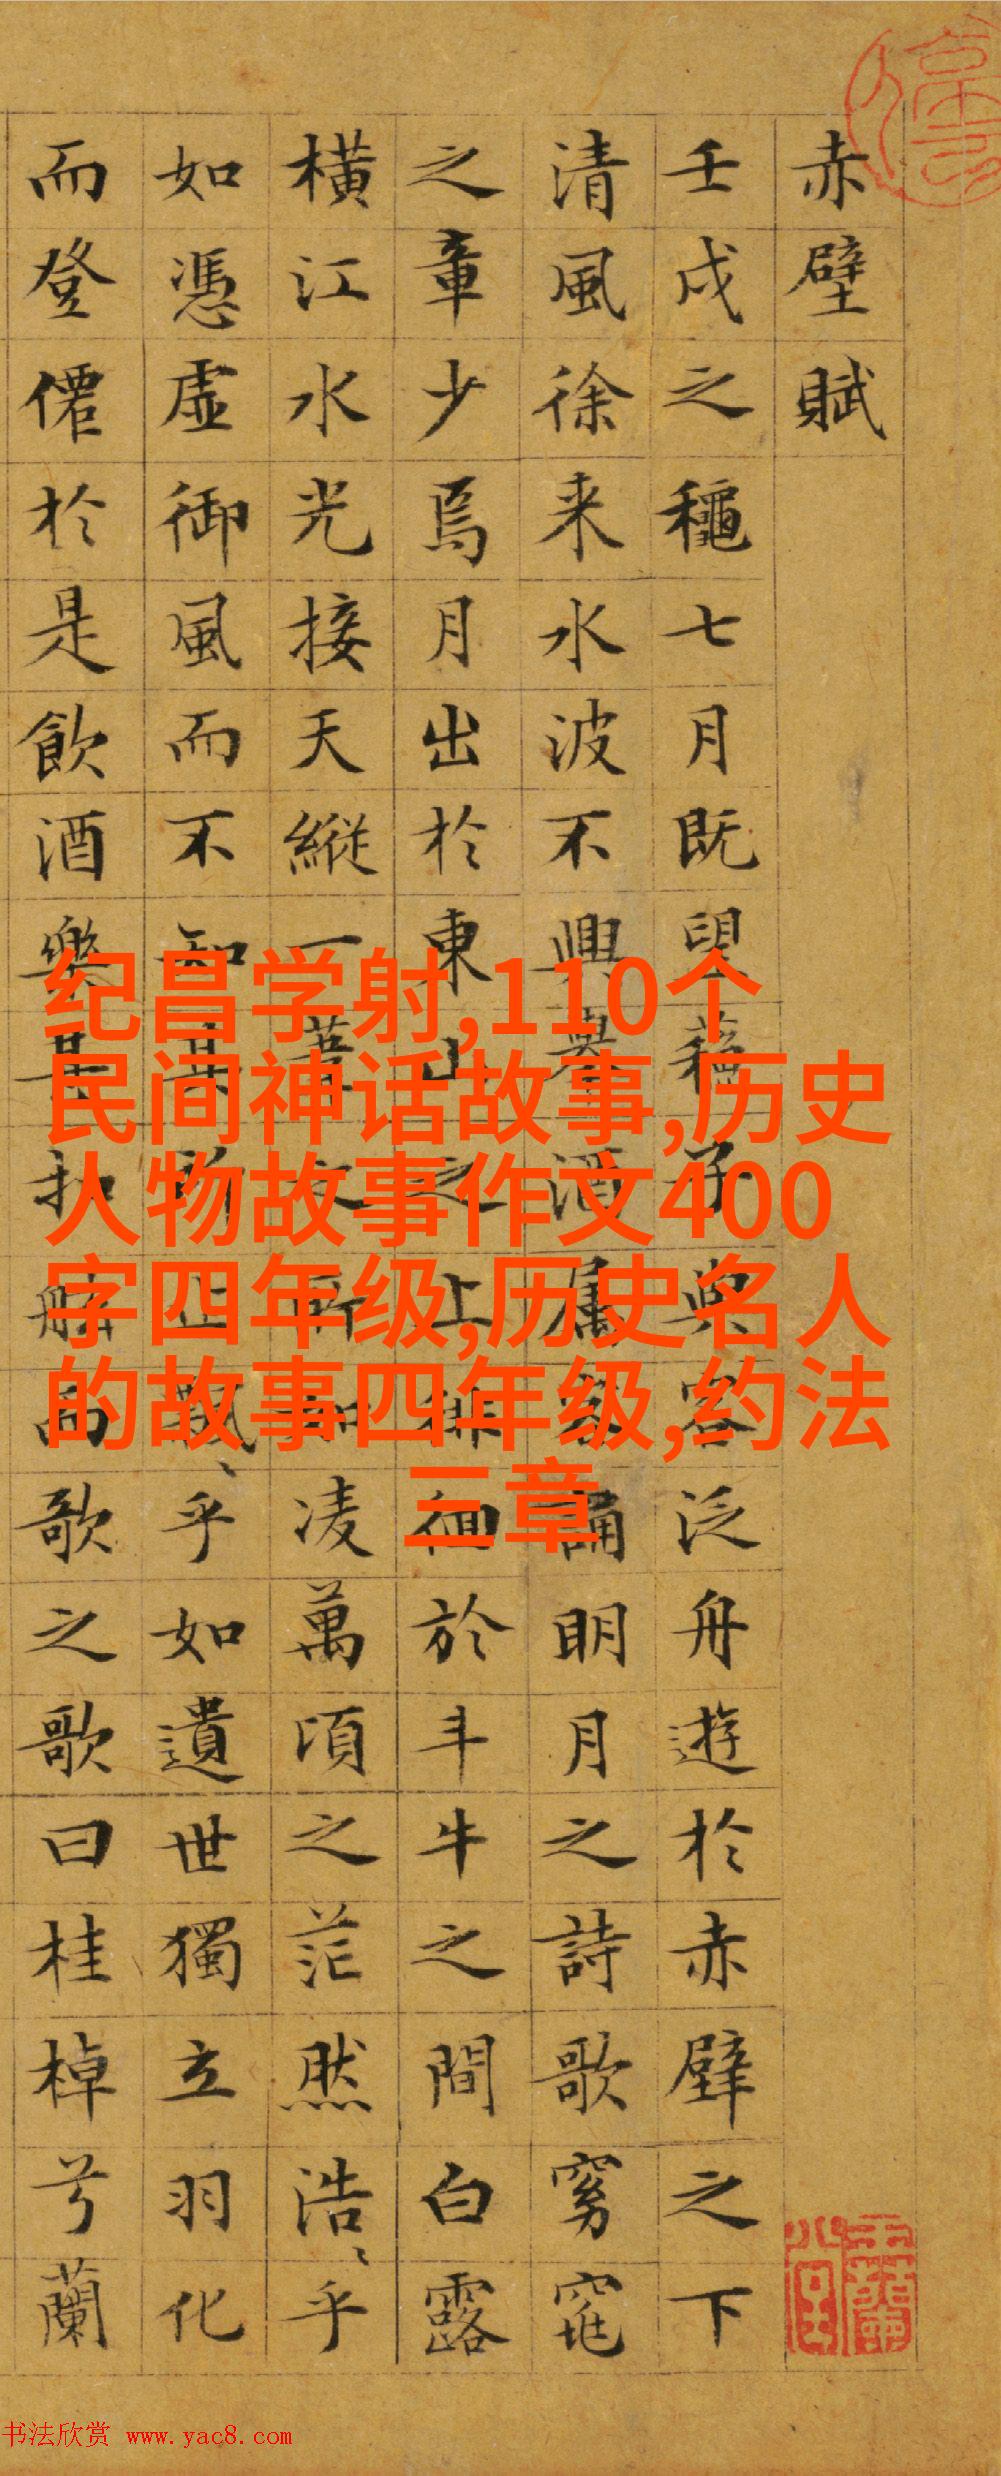 赤壁賦
壬戌之龝七月既望蘓子與客泛舟遊於赤壁之下
清風徐来水波不興舉酒属客誦明月之詩歌窈窕
之章少焉月出於東山之上徘徊於斗牛之間白露
横江水光接天縱一葦之所如凌萬頃之茫然浩、乎
如憑虚御風而不知其所止飄、乎如遺世獨立羽化
而登僊於是飲酒樂甚扣舷而歌之歌曰桂棹兮蘭
纪昌学射,110个
民间神话故事,历史
人物故事作文400
字四年级,历史名人
的故事四年级,约法
三章
书法欣赏 www.yac8.com